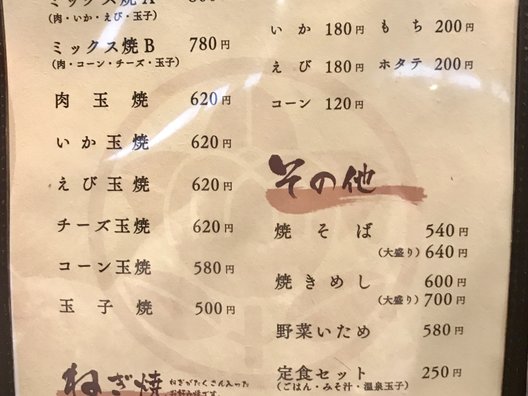 ミックス焼A
(肉・いか・えび・玉子)
ミックス焼B 780円
(肉・コーン・チーズ・玉子)
肉玉焼 620円
いか玉焼 620円
えび玉焼 620円
チーズ玉焼 620円
コーン玉焼 580円
玉子焼 500円
ねぎ焼 ねぎがたくさん入った
お好み焼です
いか 180円 もち 200円
えび 180円 ホタテ 200円
コーン 120円
その他
焼そば 540円
(大盛り) 640円
焼きめし 600円
(大盛り) 700円
野菜いため 580円
定食セット 250円
(ごはん・みそ汁・温泉玉子)